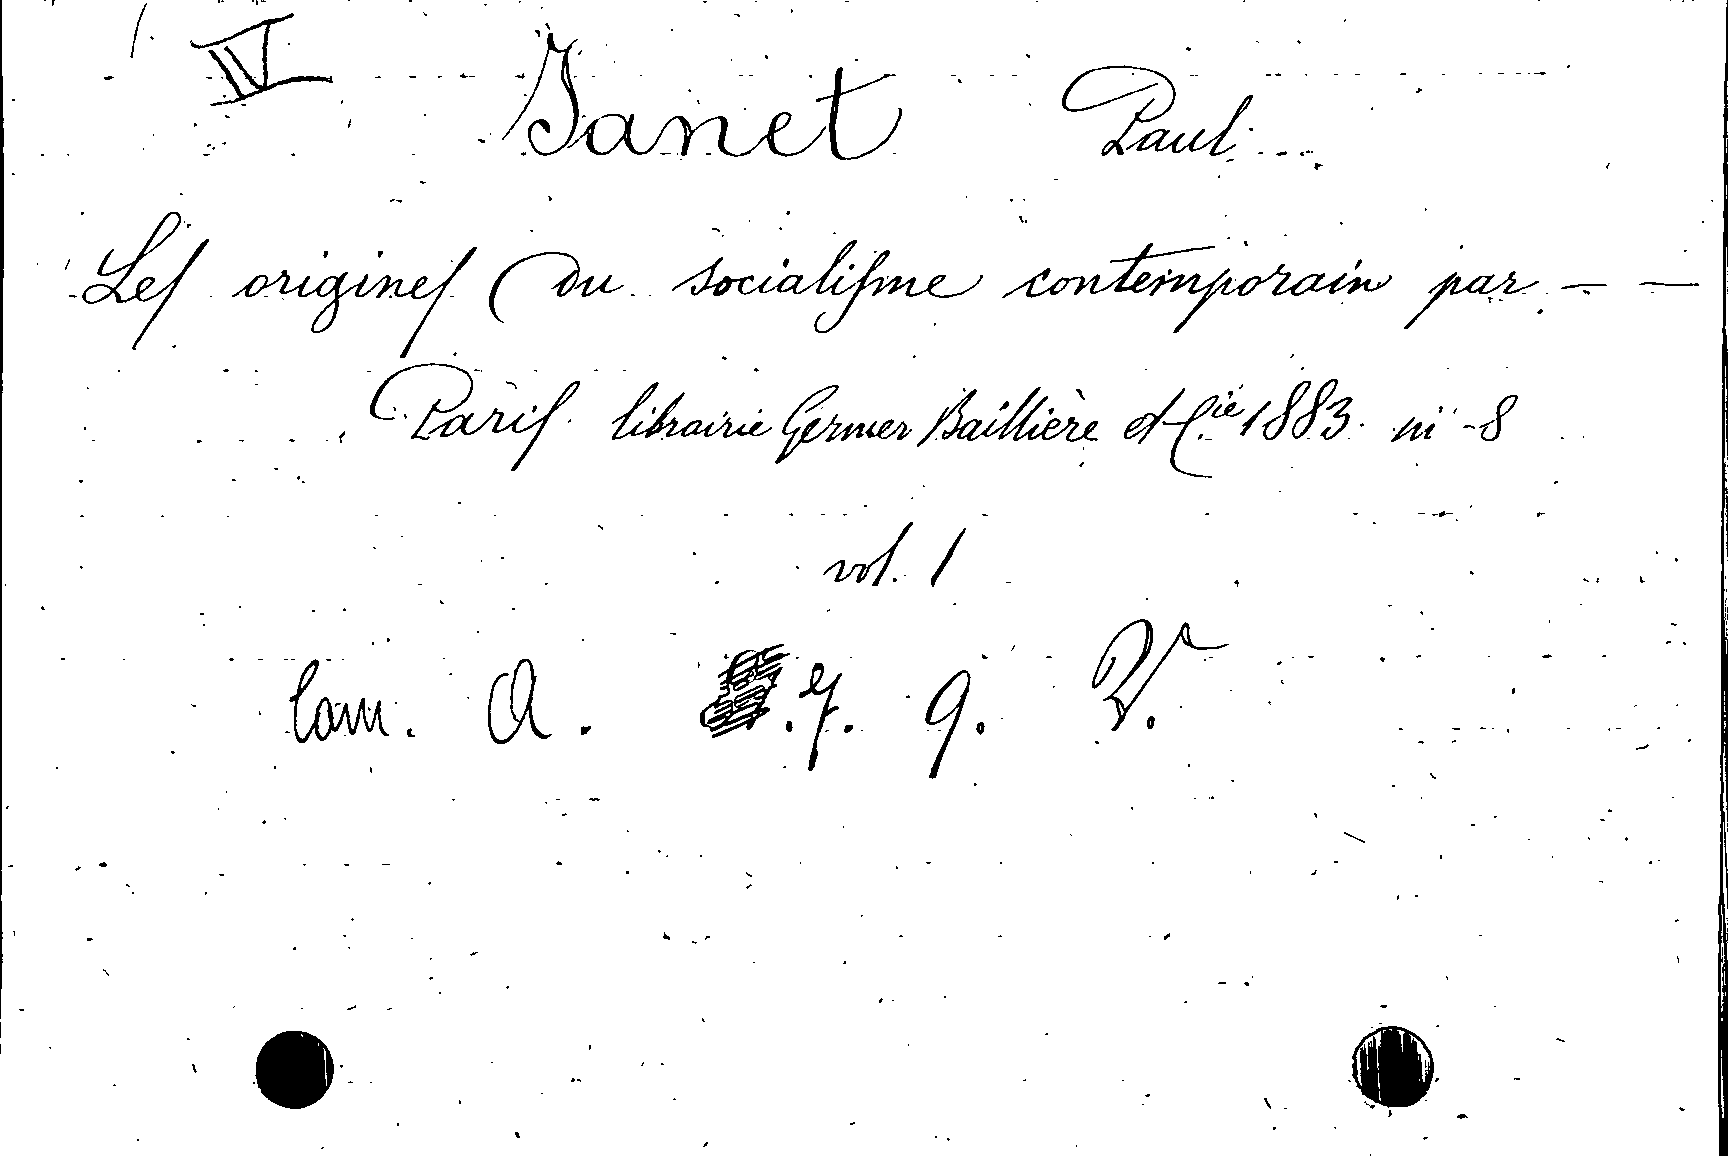 IV Janet Paul
Les origines du socialisme contemporain par — —
Paris librairie Germer Baillière et Cie 1883. in -8
vol. 1
Cam. A. 7. 9. V.